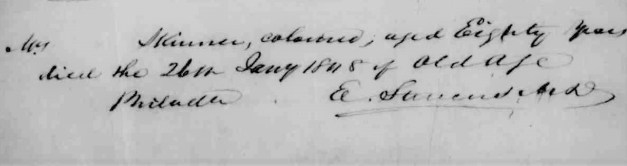 Mrs Skinner, coloured, aged Eighty Years
died the 26th Jany 1848 of Old Age
Philada E. M.D.